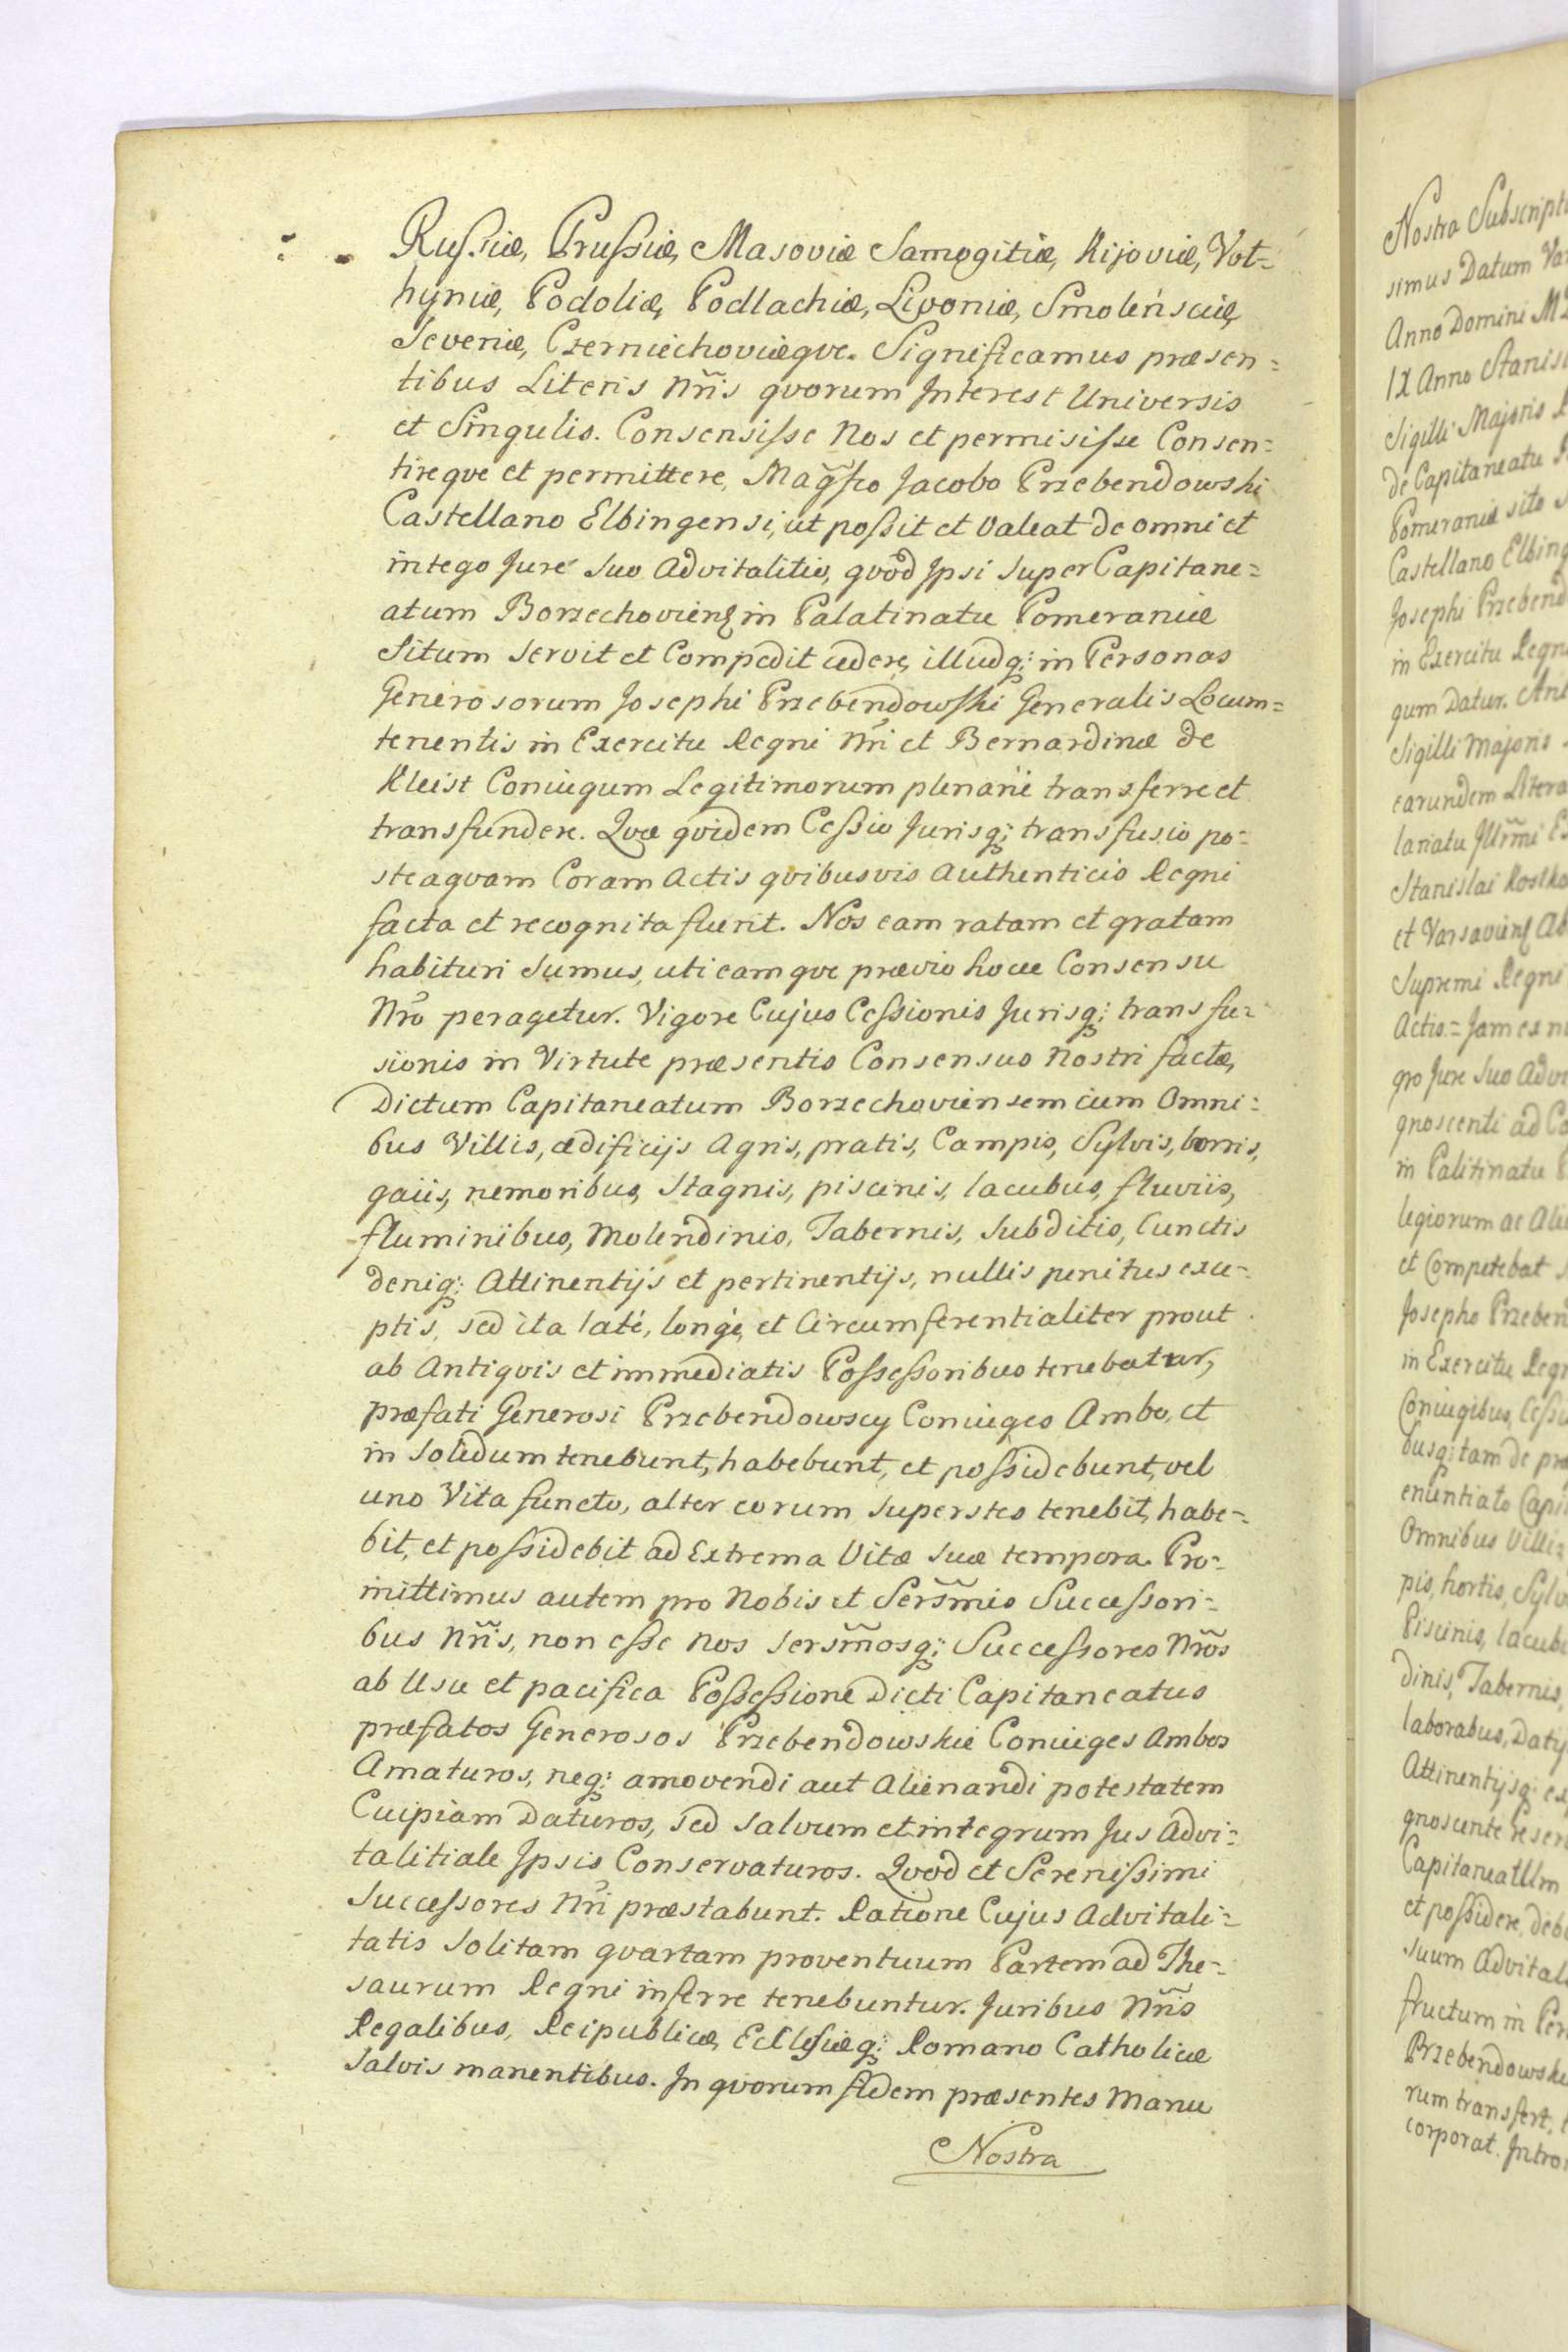 Russiæ, Prussiæ, Masoviæ Samogitiæ, Kijoviæ, Vol=
hyniæ, Podoliæ, Podlachiæ, Livoniæ, Smolénsciæ,
Severiæ, Czerniechoviæqve. Significamus præsen=
tibus Literis Nr̃is qvorum Interest Universis
et Singulis. Consensisse Nos et permisisse Consen=
tireqve et permittere, Mag̃fco Jacobo Przebendowski
Castellano Elbingensi, ut possit et valeat de omni et
intego Jure Suo Advitalitio, qvod Ipsi Super Capitane=
atum Borzechoviens in Palatinatu Pomeraniæ
Situm servit et Compedit cedere, illudq; in Personas
Generosorum Josephi Przebendowski Generalis Locum=
tenentis in Exercitu Regni Nr̃i et Bernardinæ de
Kleist Coniugum Legitimorum plenariè transferre et
transfundere. Qvæ qvidem Cessio Jurisq; transfusio po=
steaqvam Coram Actis qvibusvis Authenticis Regni
facta et recognita fuerit. Nos eam ratam et gratam
habituri Sumus, uti eamqve prævio hocce Consensu
Nr̃o peragetur. Vigore Cujus Cessionis Jurisq; transfu=
sionis in Virtute præsentis Consensus Nostri factæ,
Dictum Capitaneatum Borzechoviensem cum Omni=
bus Villis, ædificijs Agris, pratis, Campis, Sylvis, borris,
gaiis, nemoribus, Stagnis, piscinis, lacubus, fluviis,
fluminibus, Molendinis, Tabernis, Subditis, Cunctis
deniq; Attinentijs et pertinentijs, nullis penitus exce=
ptis, sed ita latè, longè, et Circumferentialiter prout
ab Antiqvis et immediatis Possessoribus tenebatur,
præfati Generosi Przebendowscy Coniuges Ambo, et
in Solidum tenebunt, habebunt, et possidebunt, vel
uno Vita functo, alter eorum Superstes tenebit, habe=
bit, et possidebit ad Extrema Vitæ Suæ tempora. Pro=
mittimus autem pro Nobis et Sers̃mis Successori=
bus Nr̃is, non esse Nos Sersm̃osq; Successores Nr̃os
ab Usu et pacifica Possessione Dicti Capitaneatus
præfatos Generosos Przebendowskie Coniuges Ambos
Amaturos, neq; amovendi aut Alienandi potestatem
Cuipiam Daturos, sed Salvum et integrum Jus Advi=
talitiale Ipsis Conservaturos. Qvod et Serenissimi
Successores Nr̃i præstabunt. Ratione Cujus Advitali=
tatis Solitam qvartam proventuum Partem ad The=
saurum Regni inferre tenebuntur. Juribus Nr̃is
Regalibus, Reipublicæ, Ecclesiæq; Romano Catholicæ
Salvis manentibus. In qvorum fidem præsentes Manu
Nostra
Nostra Subscript
simus Datum Va
Anno Domini M
IX Anno Stanis
Sigilli Majoris R
de Capitaneatu
Pomeraniæ sito
Castellano Elbing
Josephi Przebend
in Exercitu Regn
gum Datur.
Sigilli Majoris
earundem Litera
lariatu Illr̃mi
Stanislai
et Varsaviens
Supremi Regni
Actis = Jam
gro Jure Suo Adv
gnoscenti ad
in Palitinatu
legiorum ac
et Competebat
Josepho Przeben
in Exercitu Regn
Coniugibus, Cess
busq; tam de
enuntiato Capi
Omnibus Villi
pis, hortis, Sylv
Piscinis, lacub
dinis, Tabernis,
laborabus, Daty
Attinentijsq;
gnoscente
Capitaneatum
et possidere,
suum Advital
fructum in
Przebendowski
rum transfert,
corporat. Intro